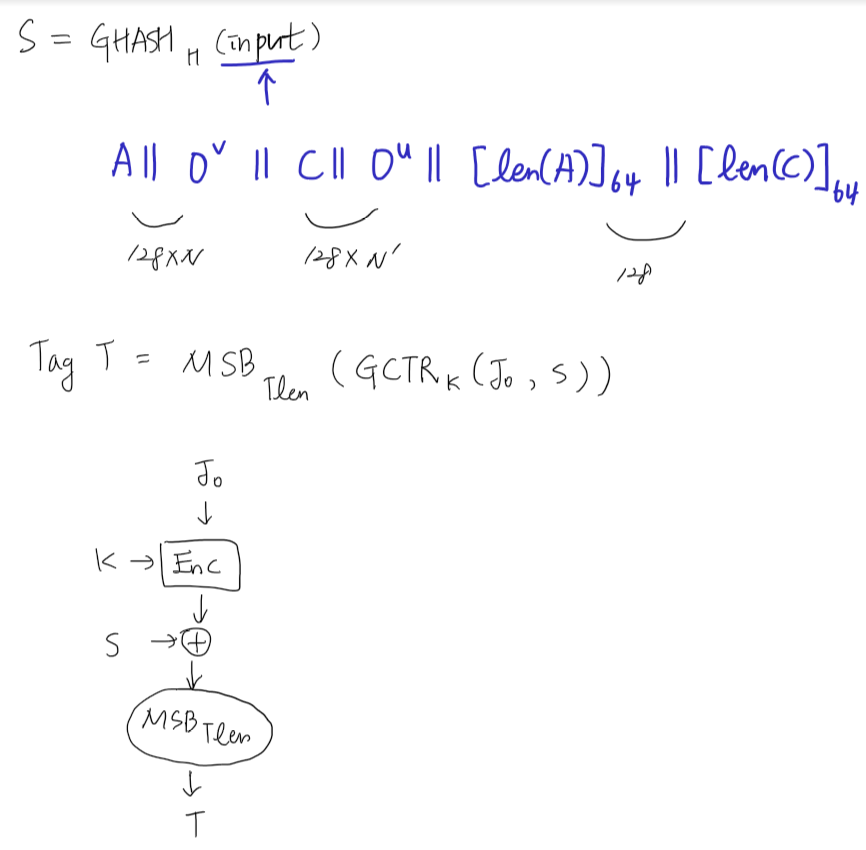 S = GHASH_H (input)
↑
A || 0^v || C || 0^u || [len(A)]_64 || [len(C)]_64
128×N 128×N' 128
Tag T = MSB_Tlen (GCTR_K (J_0, S))
J_0
↓
K → Enc
↓
S → ⊕
↓
MSB_Tlen
↓
T